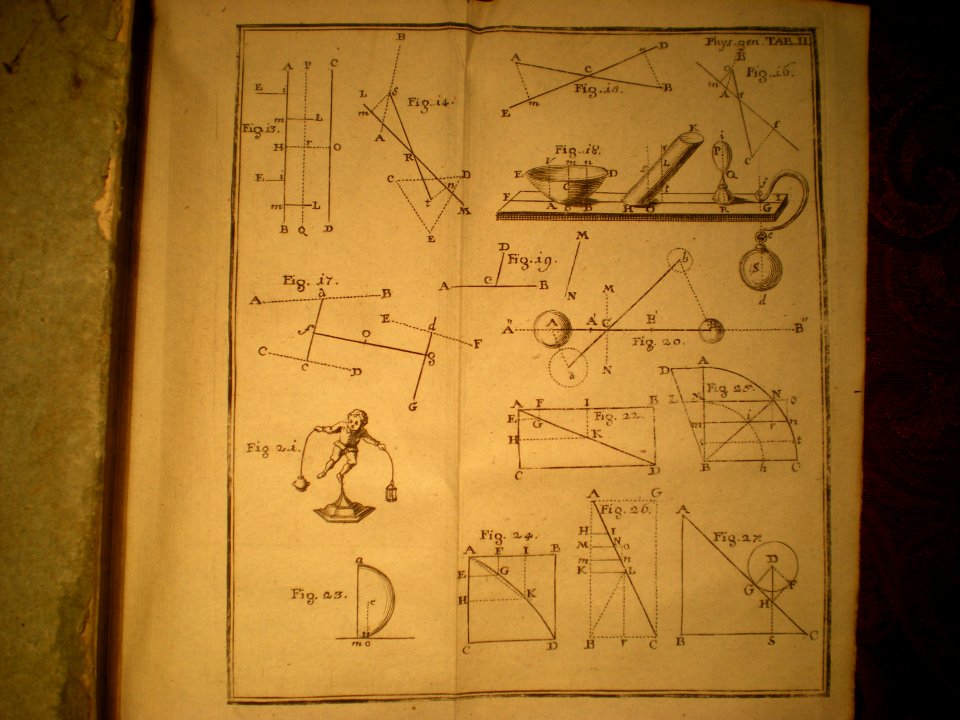 Phys. gen. TAB. II.
A P C
E i
m L
Fig. 13.
H r O
E i
m L
B Q D
B
L S
Fig. 14.
m
A
R
C D
n
r
M
E
A D
n
C
Fig. 15.
B
m
E
B
Fig. 16.
m
A
r
f
C
Fig. 17.
A a B
S o
E d
F
C
c D
g
G
Fig. 18.
K
V m n
E D
C
L
i
P
Q
F A o B H O R G I
e
S
d
D
Fig. 19.
A C B
M
N
b
M
A" A A' C B' B B"
Fig. 20.
a N
Fig 21.
A F I B
Fig. 22.
E G
H K
C D
a
Fig. 23.
c
m o
Fig. 24.
A F I B
E G
H K
C D
D A
Fig. 25.
L N N o
m i r n
s t
B h C
A G
Fig. 26.
H I
M N o
m n
K L
B r C
A
Fig. 27.
D
G F
H
B S C